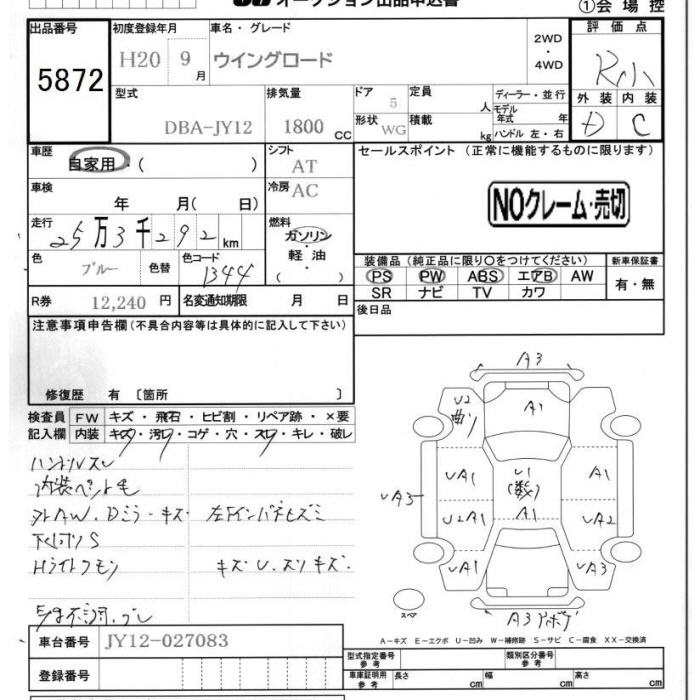 オークション出品申込書
①会場控
出品番号 初度登録年月 車名・グレード 2WD・4WD 評価点
5872 H20 9月 ウイングロード R小
型式 排気量 ドア 定員 ディーラー・並行 外装 内装
DBA-JY12 1800CC 5 人 モデル年式 年 D C
形状 WG 積載 kg ハンドル 左・右
車歴 シフト セールスポイント (正常に機能するものに限ります)
自家用・( ) AT
車検 冷房 AC
年 月( 日) NOクレーム・売切
走行 燃料
25万3千292km ガソリン
軽油
( )
色 ブルー 色替 色コード 1344
装備品(純正品に限り○をつけてください) 新車保証書
PS PW ABS エアB AW 有・無
SR ナビ TV カワ
R券 12,240円 名変通知期限 月 日
後日品
注意事項申告欄(不具合内容等は具体的に記入して下さい)
修復歴 有 〔箇所 〕
検査員 FW キズ・飛石・ヒビ割・リペア跡・×要
記入欄 内装 キズ・汚レ・コゲ・穴・スレ・キレ・破レ
ハンドルスレ
外AW.Dミラーキズ
下廻りS
キズU.スリキズ.
A3
U2
曲り
A1
UA1
U1
(数)
A1
UA3
U2A1
A1
UA2
UA1
UA3
スペア
A3
A-キズ E-エクボ U-凹み W-補修跡 S-サビ C-腐食 XX-交換済
車台番号 JY12-027083
型式指定番号 参考 類別区分番号 参考
登録番号
車庫証明用 参考 長さ cm 幅 cm 高さ cm